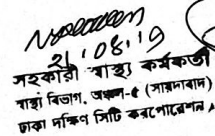 21.08.19
সহকারী স্বাস্থ্য কর্মকর্তা
স্বাস্থ্য বিভাগ, অঞ্চল-৫ (সায়দাবাদ)
ঢাকা দক্ষিণ সিটি করপোরেশন,